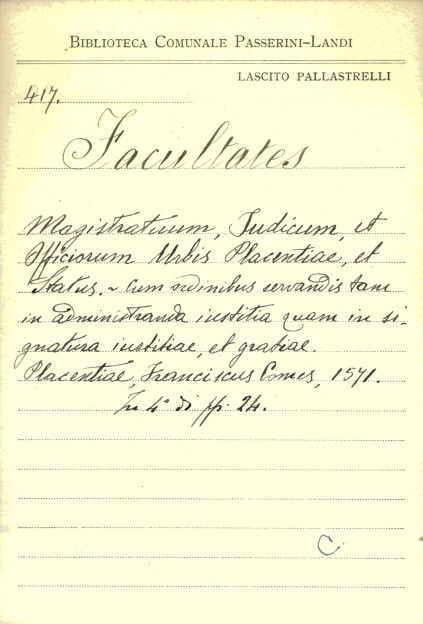 BIBLIOTECA COMUNALE PASSERINI-LANDI
LASCITO PALLASTRELLI
417.
Facultates
Magistratuum, Iudicum, et
Officiorum Urbis Placentiae, et
Status. ~ Cum ordinibus servandis tam
in administranda iustitia quam in si-
gnatura iustitiae, et gratiae.
Placentiae, Franciscus Comes, 1571.
In 4° di ff. 24.
C.